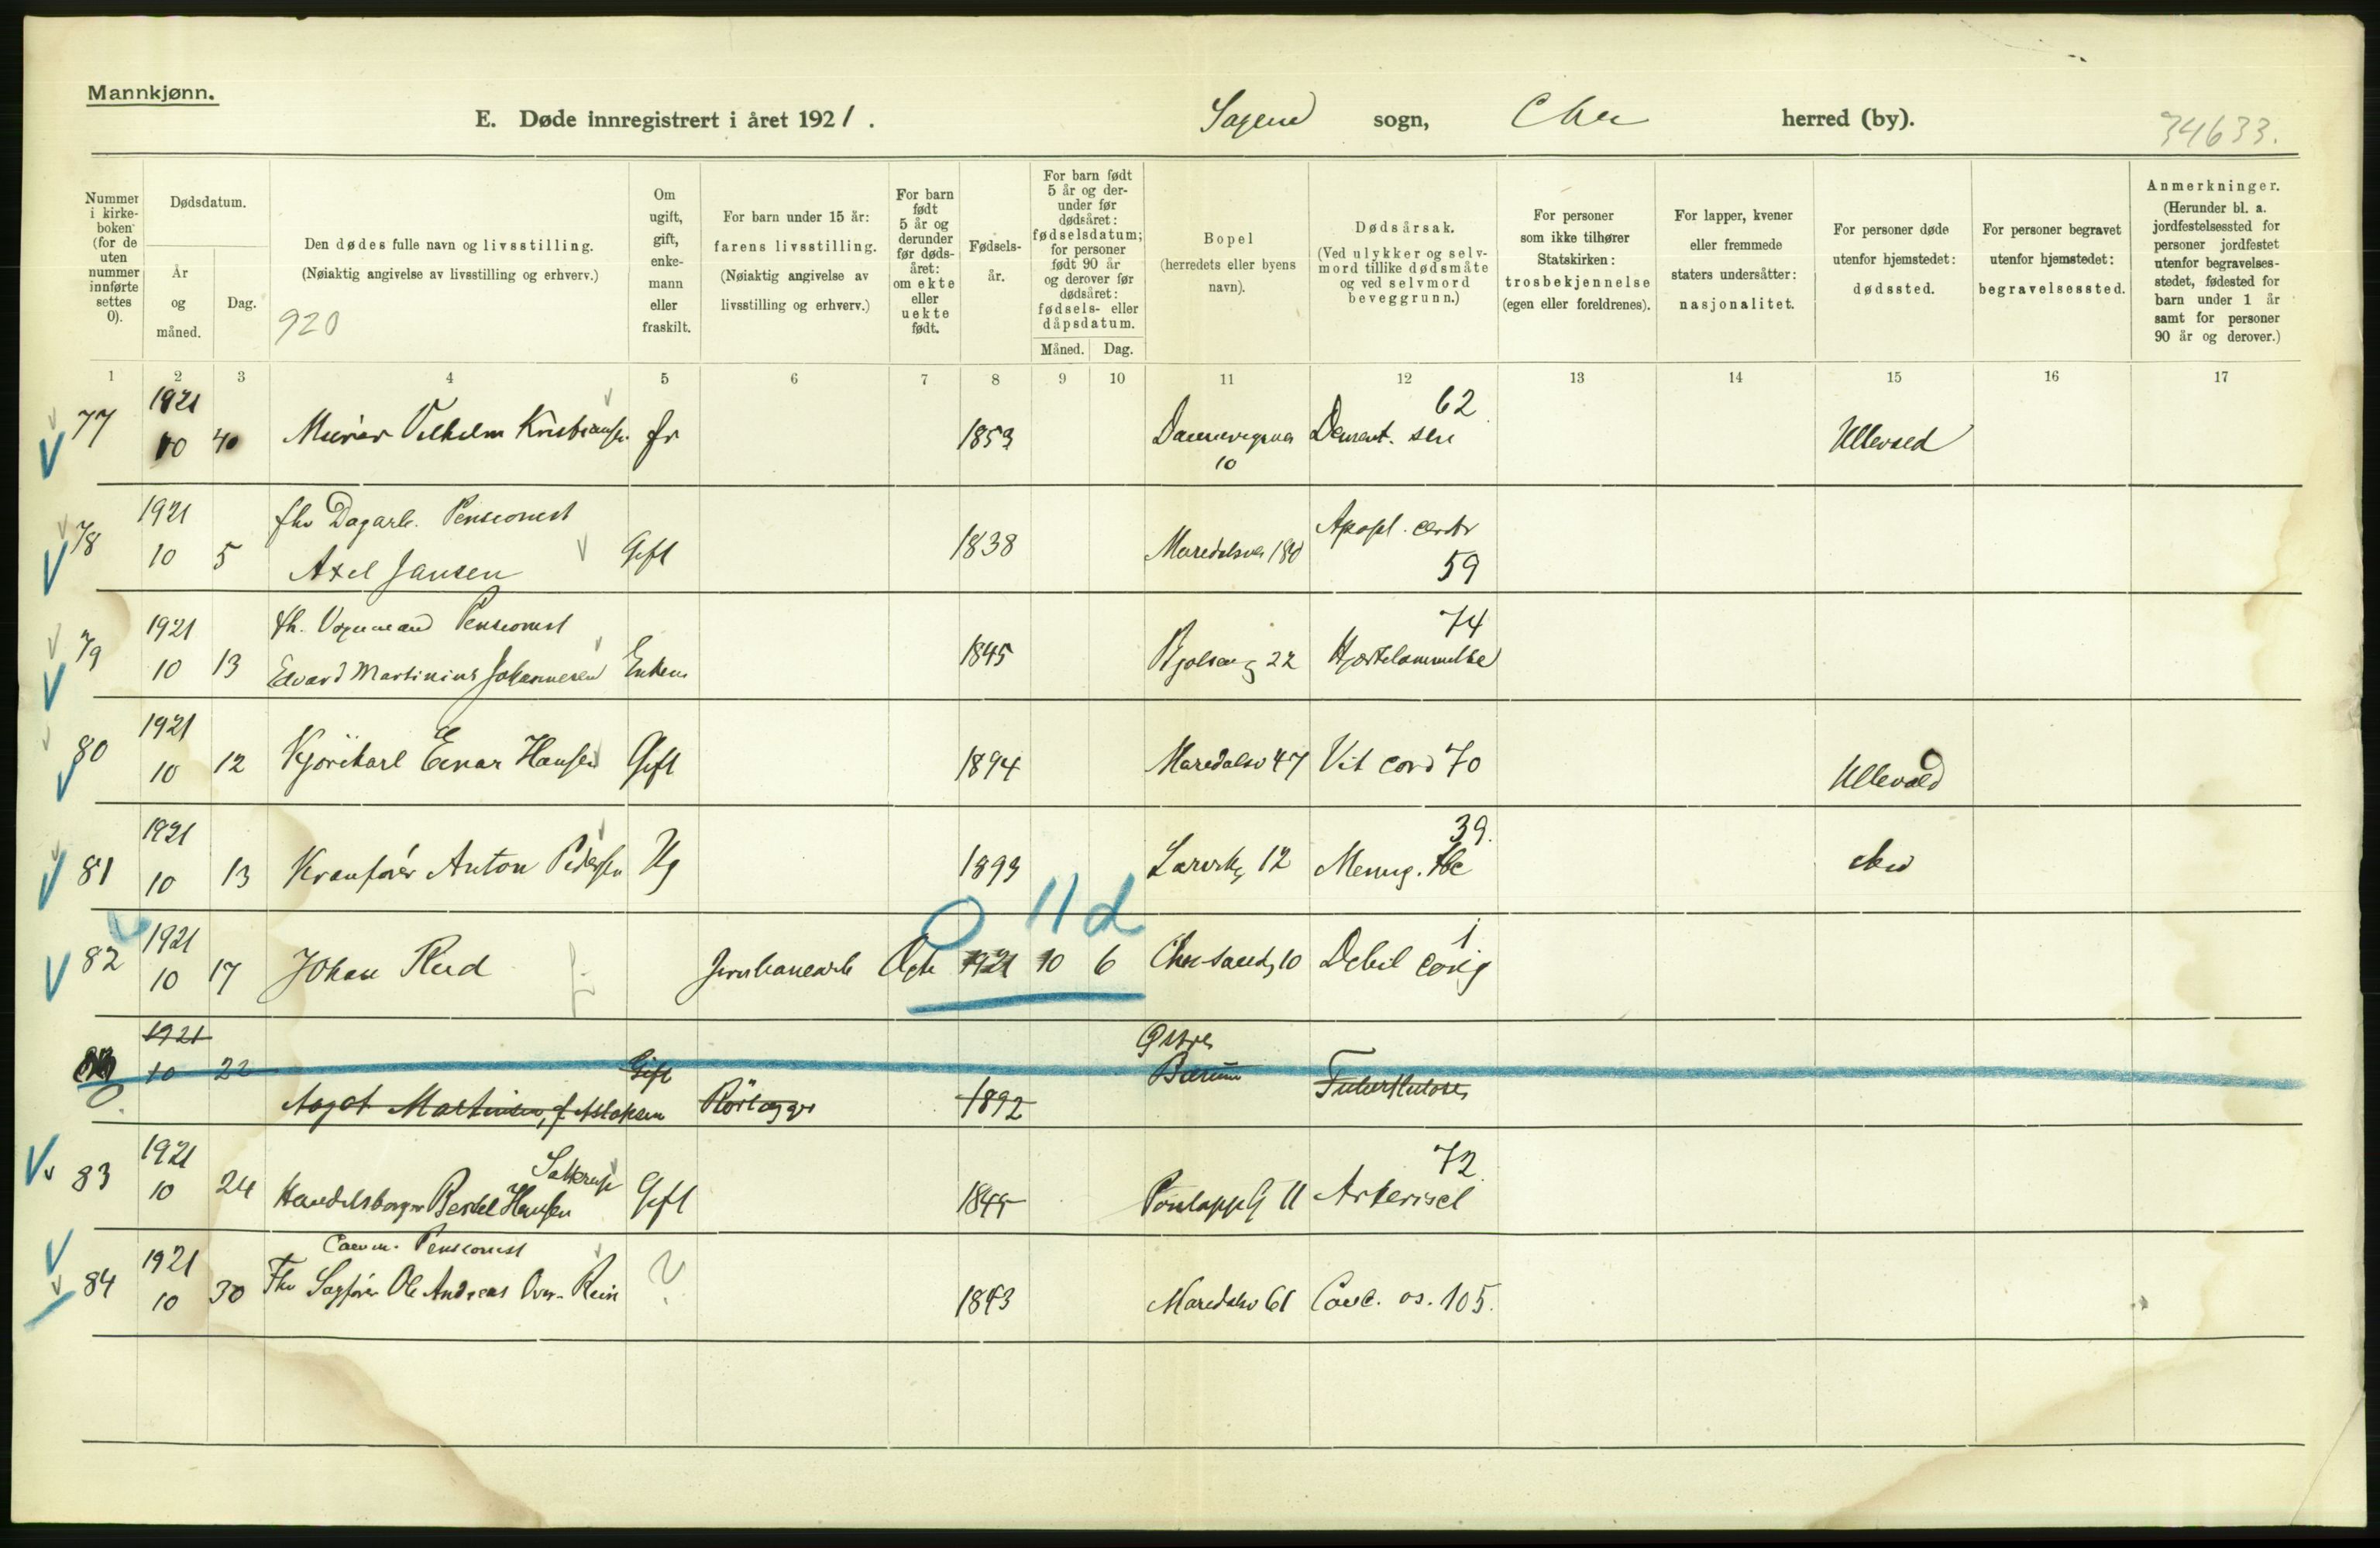 Mannkjønn.
E. Døde innregistrert i året 1921.
Sagene sogn, Chra herred (by).
34633.
Nummer i kirke-boken (for de uten nummer innførte settes 0).
Dødsdatum.
År og måned.
Dag.
Den dødes fulle navn og livsstilling.
(Nøiaktig angivelse av livsstilling og erhverv.)
920
Om ugift, gift, enke-mann eller fraskilt.
For barn under 15 år:
farens livsstilling.
(Nøiaktig angivelse av livsstilling og erhverv.)
For barn født 5 år og derunder før døds-året: om ekte eller uekte født.
Fødsels-år.
For barn født 5 år og der-under før dødsåret: fødselsdatum; for personer født 90 år og derover før dødsåret: fødsels- eller dåpsdatum.
Måned. Dag.
Bopel
(herredets eller byens navn).
Dødsårsak.
(Ved ulykker og selv-mord tillike dødsmåte og ved selvmord beveggrunn.)
For personer som ikke tilhører Statskirken: trosbekjennelse (egen eller foreldrenes).
For lapper, kvener eller fremmede staters undersåtter: nasjonalitet.
For personer døde utenfor hjemstedet: dødssted.
For personer begravet utenfor hjemstedet: begravelsessted.
Anmerkninger.
(Herunder bl. a. jordfestelsessted for personer jordfestet utenfor begravelses-stedet, fødested for barn under 1 år samt for personer 90 år og derover.)
1 2 3 4 5 6 7 8 9 10 11 12 13 14 15 16 17
77 1921 10 Murer Vilhelm Kristiansen fr 1853 10 Dement. sen 62 Ullevaal
78 1921 10 5 fhv Dagarb. Pensionist
Axel Jansen Gift 1838 Maridalsvn 180 Apopl. cerebr 59
79 1921 10 13 fh. Vognmand Pensionist
Edvard Martinius Johannesen Enkem 1845 Bjølseng 22 Hjertelammelse 74
80 1921 10 12 Kjørekarl Einar Hansen Gift 1894 Maridalsv 47 Vit cord 70 Ullevaal
81 1921 10 13 Kranfører Anton Pedersen Ug 1893 12 Mening. tbc 39.
0 11 d
82 1921 10 17 Johan Rud Jernbanearb Ægte 1921 10 6 10 Debil cong 1
1921 10 22 Gift Østre Bærum
Aagot Martinsen, f. Aslaksen Rørlægger 1892 Tuberkulose
83 1921 10 24 Handelsborger Bertel Hansen Gift 11 Arterioscl 72
84 1921 10 30 Pensionist
Fhv Sagfører Ole Andreas Over-Rein ? 1843 Maridalsv 61 Canc. os. 105.